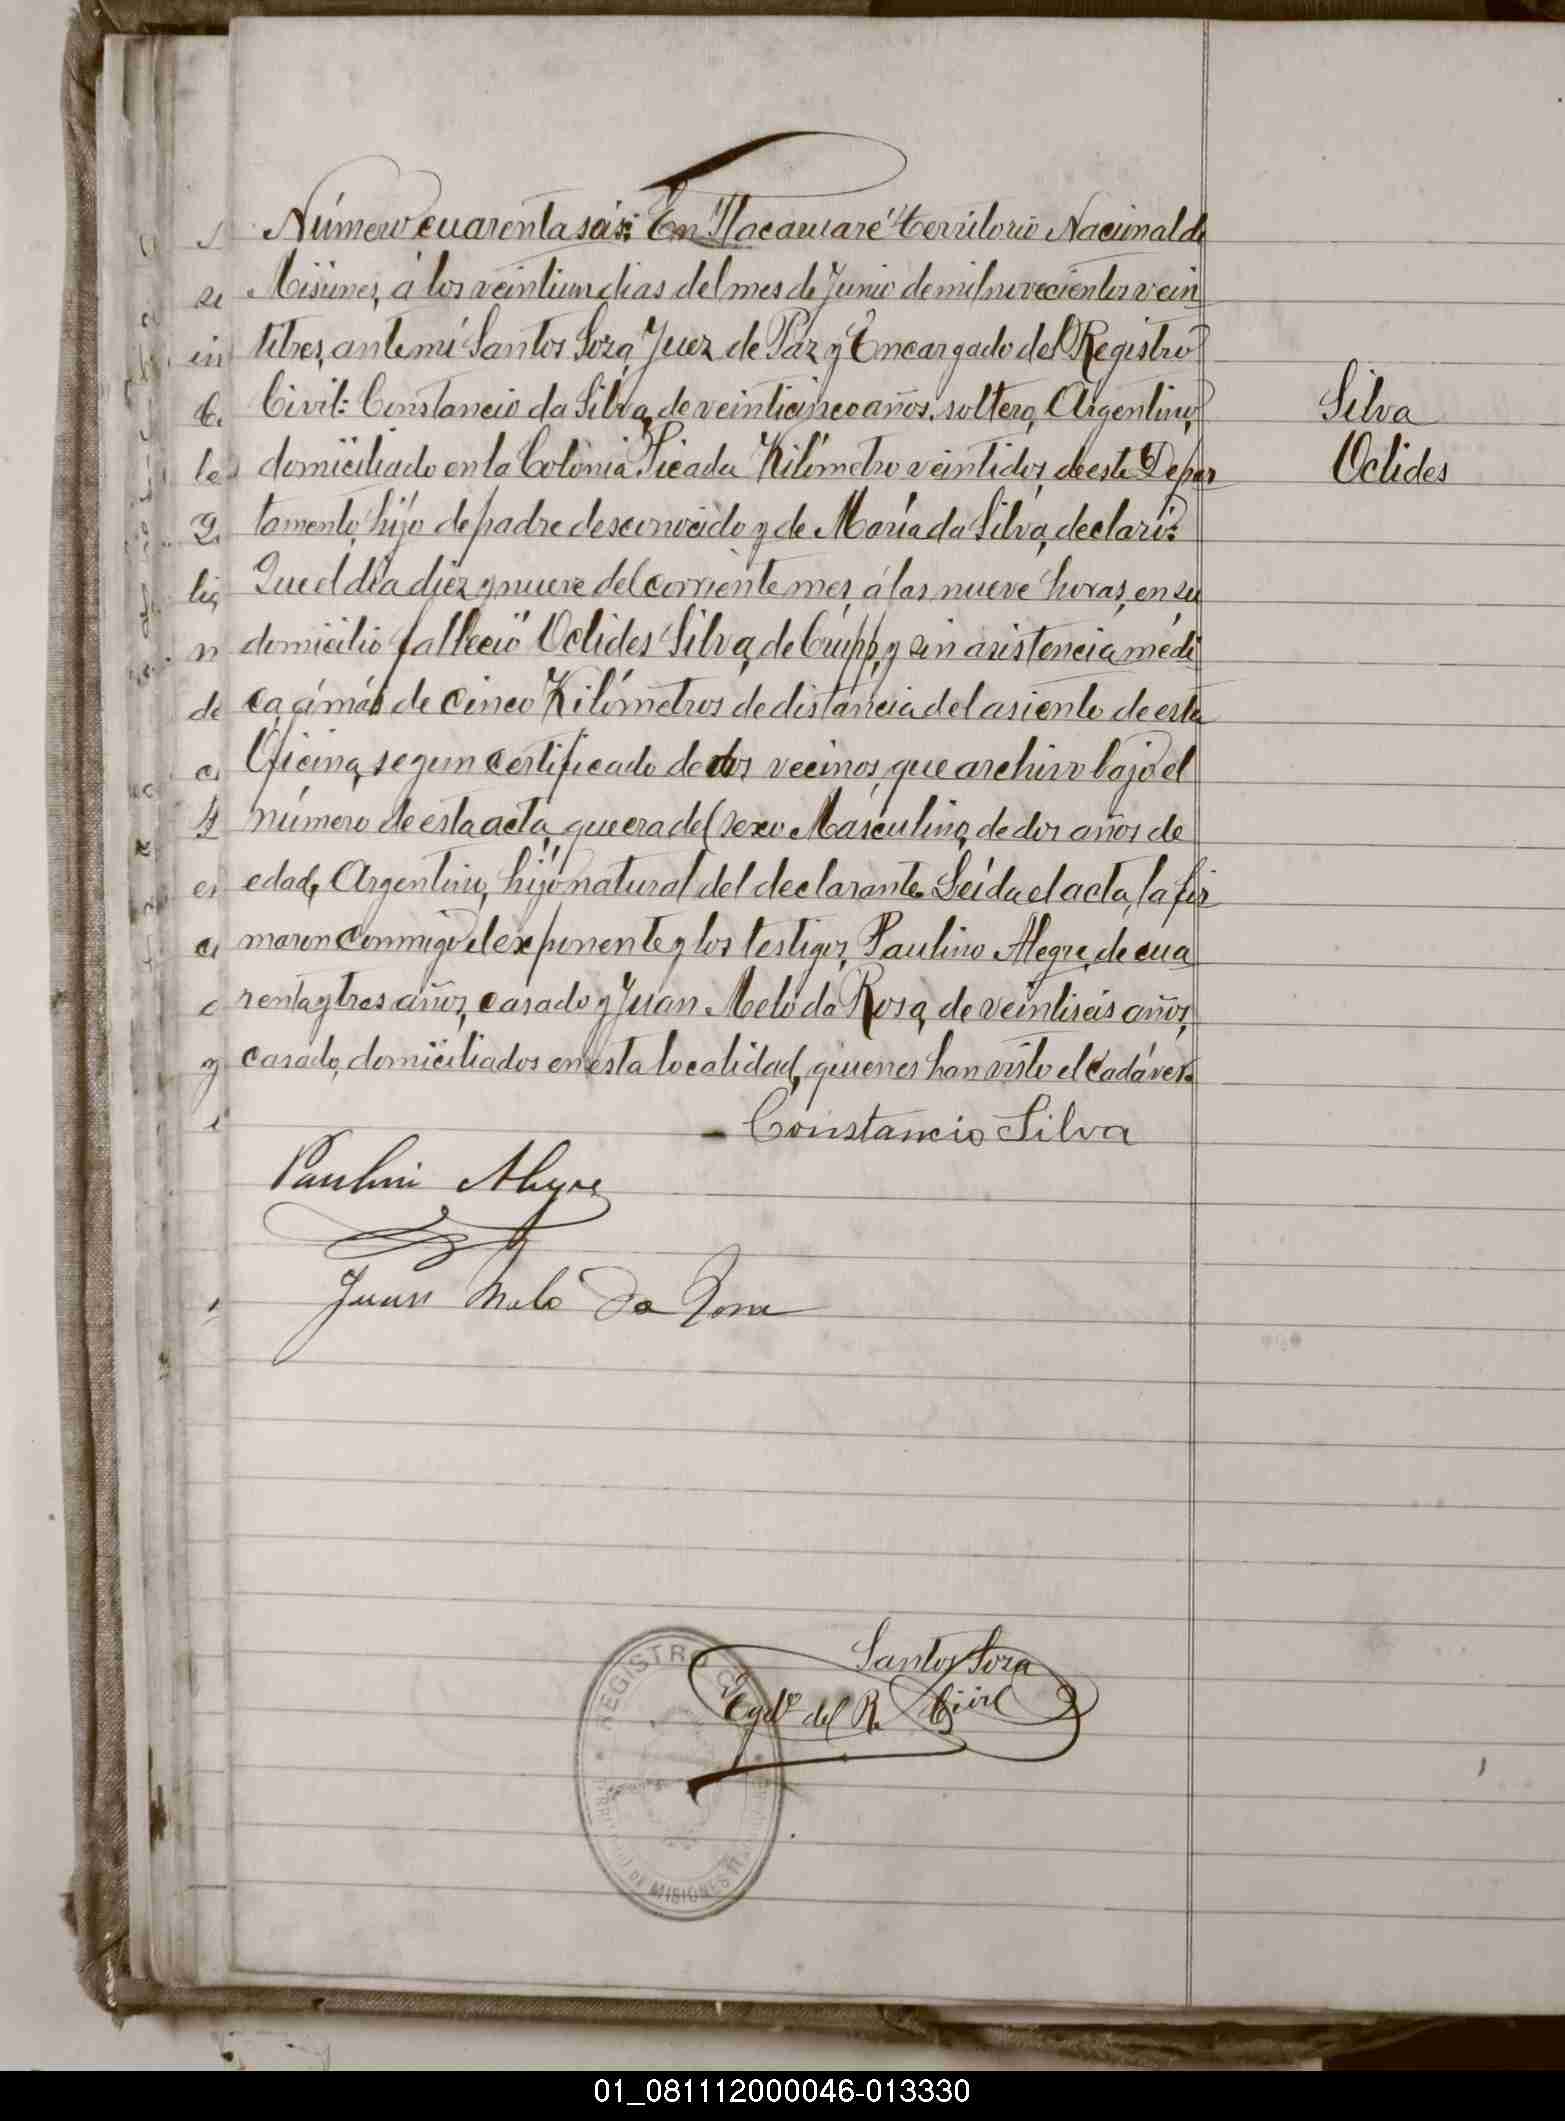 Número cuarenta seis: En Itacaruaré territorio Nacional de
Misiones, á los veintiun dias del mes de Junio de mil novecientos vein
titres, ante mi Santos Soza, Juez de Paz y Encargado del Registro
Civil: Constancio da Silva, de veinticinco años, soltero, Argentino,
domiciliado en la Colonia Picada Kilómetro veintidos, de este Depar
tamento, hijo de padre desconocido y de María da Silva, declaró:
Que el día diez y nueve del corriente mes, á las nueve horas, en su
domicilio falleció Oclides Silva, de Crupp, y sin asistencia médi
ca, á más de cinco Kilómetros de distancia del asiento de esta
Oficina, segun certificado de dos vecinos, que archivo bajo el
número de esta acta, que era del sexo Masculino, de dos años de
edad, Argentino, hijo natural del declarante. Leída el acta, la fir
maron conmigo el exponente y los testigos, Paulino Alegre, de cua
renta y tres años, casado y Juan Melo da Rosa, de veintiseis años,
casado, domiciliados en esta localidad, quienes han visto el cadáver.
Silva
Oclides
Constancio Silva
Paulino Alegre
Juan Melo Da Rosa
Santos Soza
Egdo. del R. Civil
REGISTRO
MISIONES
01_081112000046-013330